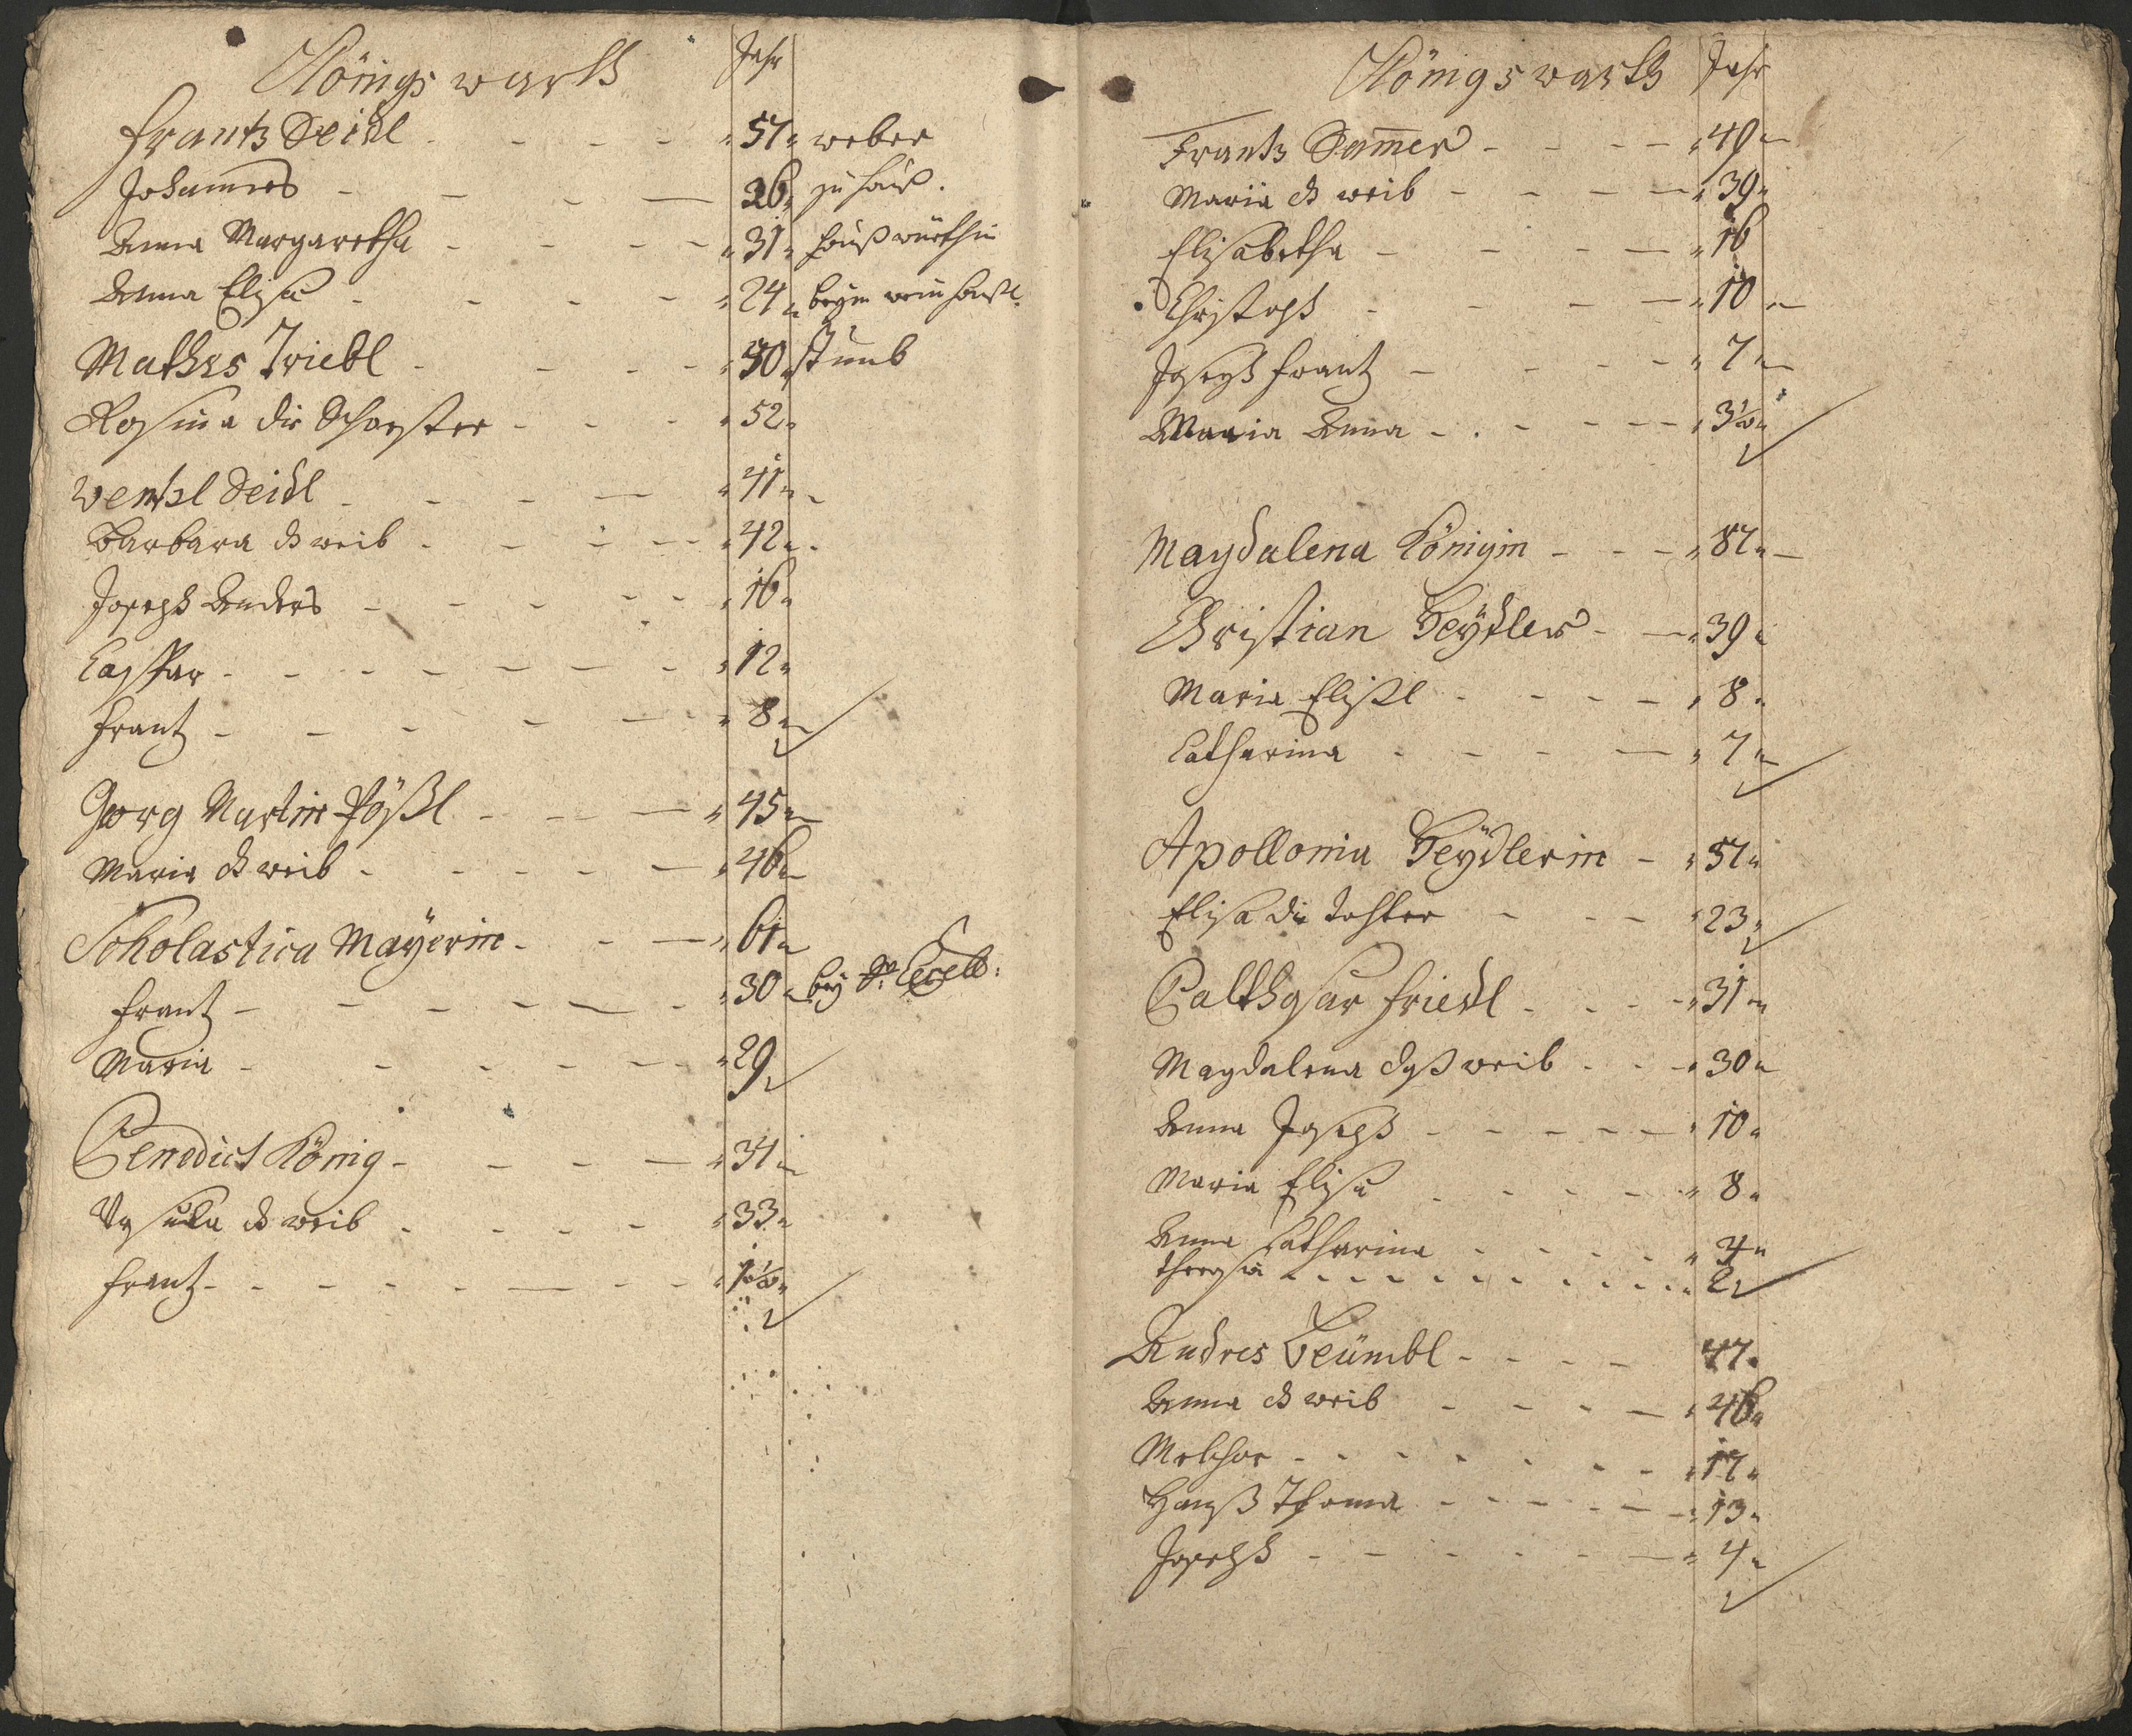 Königswarth Jahr
Frantz Seidl 57 weber
Johannes 26 zu hauß.
Anna Margaretha 31 haußwürthin
Anna Elisa 24 beym
Mathes Triebl 50 stumb
Rosina die Schwester 52
Wentzl Seidl 41
Barbara d weib 42
Joseph Anders 16
Caspar 12
Frantz 8
Georg Martin Pößl 45
Maria d weib 46
Scholastica Mayerin 61
Frantz 30 bey
Maria 29
Benedict König 34
Ursula d weib 33
Frantz 1 1/2
Königswarth Jahr
Frantz Sam̅er 49
Maria d weib 39
Elisabetha 16
Christoph 10
Joseph Frantz 7
Maria Anna 3 1/2
Magdalena Königin 87
Christian Beÿdler 39
Maria Elißl 8
Catharina 7
Apollonia Beÿdlerin 57
Elisa die tochter 23
Balthasar Friedl 31
Magdalena deß weib 30
Anna Joseph 10
Maria Elisa 8
Anna Catharina 4
Theresia 2
Andres Beümbl 47
Anna d weib 46
Melchor 17
Hanß Thoma 13
Joseph 4